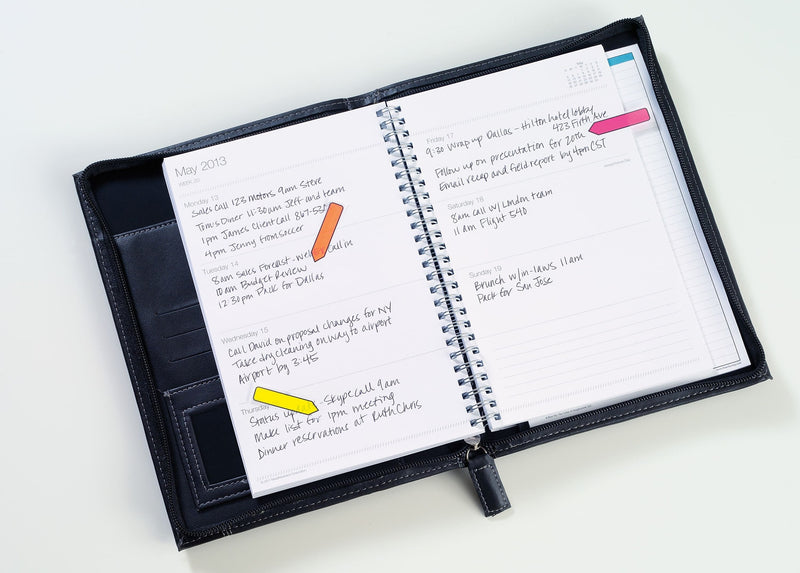 May 2013
WEEK 20
Monday 13
Sales Call 123 Motors 9am Steve
Tom's Diner 11:30am Jeff and team
1pm James Client Call 867-53
4pm Jenny from soccer
Tuesday 14
8am Sales Forecast - Call in
10am Budget Review
12:30pm Pack for Dallas
Wednesday 15
Call David on proposal changes for NY
Take dry cleaning on way to airport
Airport by 3:45
Thursday
Status Skype call 9am
Make list for 1pm meeting
Dinner reservations at Ruth Chris
May
Friday 17
9:30 Wrap up Dallas - Hilton hotel lobby
423 Fifth Ave
Follow up on presentation for 20th
Email recap and field report by 4pm CST
Saturday 18
8am call w/ London team
11am Flight 540
Sunday 19
Brunch w/in-laws 11am
Pack for San Jose